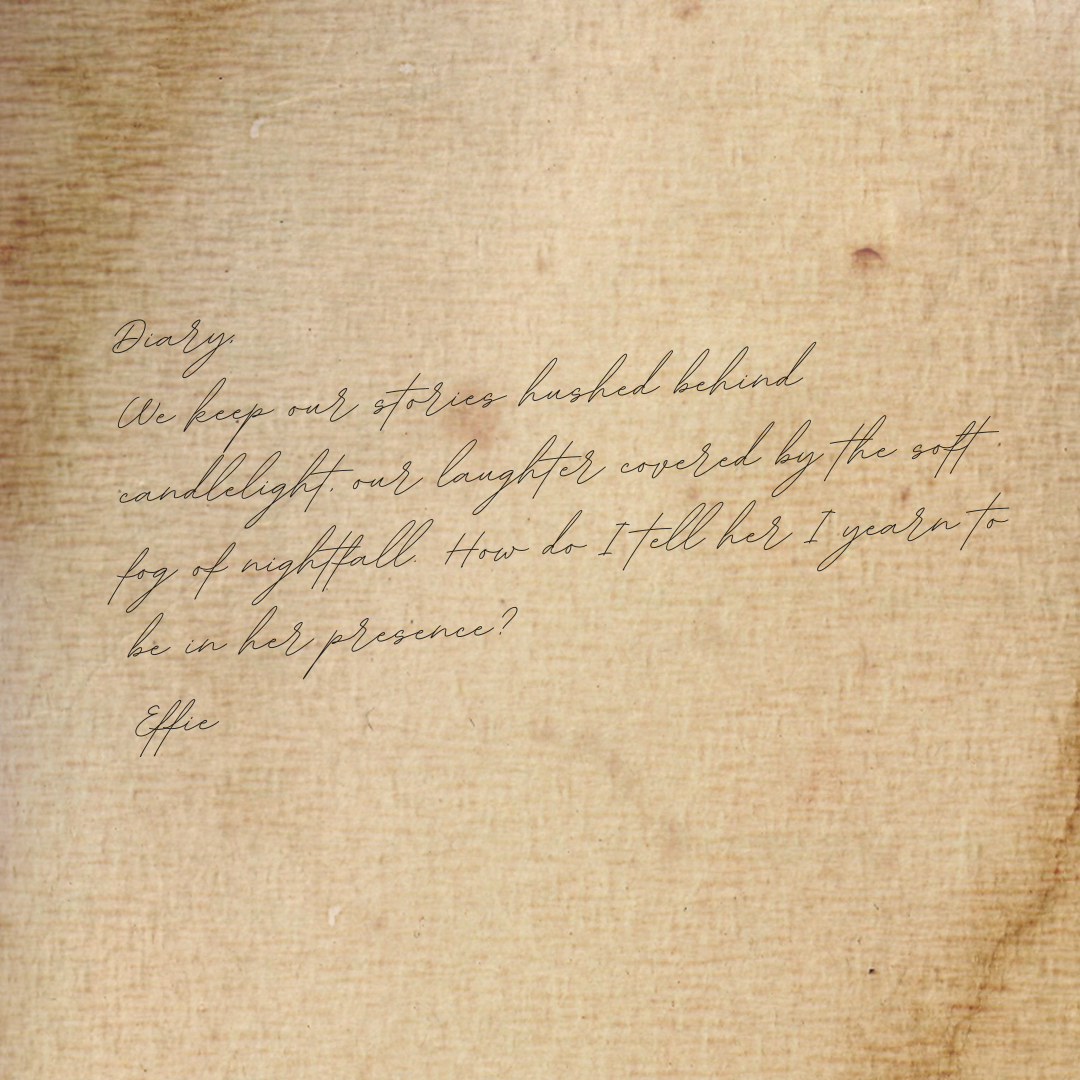 Diary,
We keep our stories hushed behind
candlelight, our laughter covered by the soft
fog of nightfall. How do I tell her I yearn to
be in her presence?
Effie